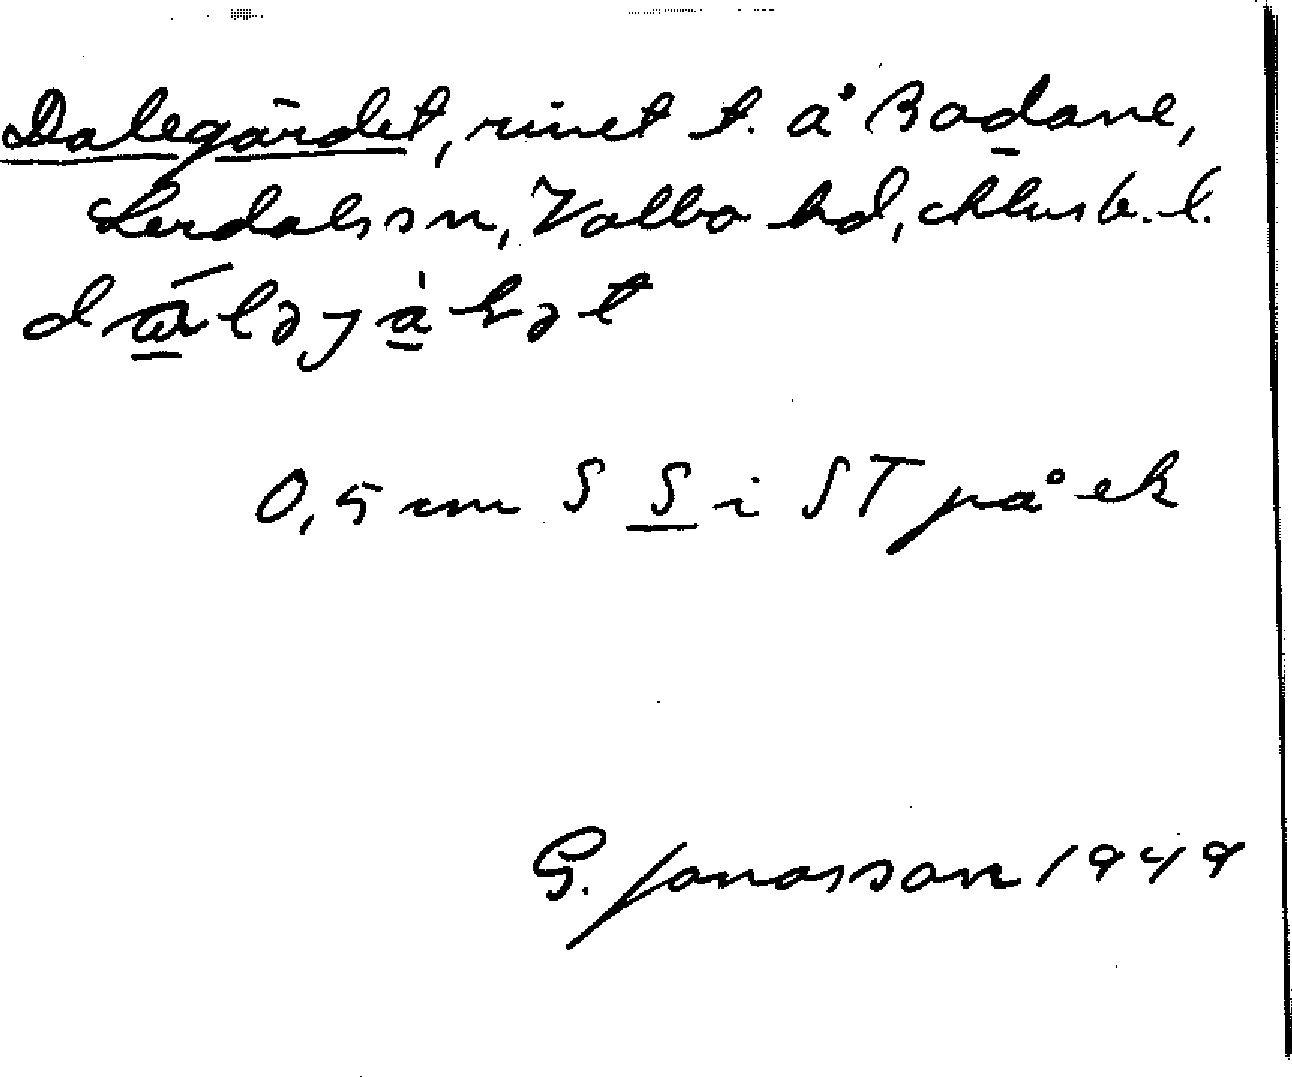 Dalegärdet, rivet t. å Bodane,
Lerdals sn, Valbo hd, Älvsb. l.
0,5 cm S S i ST på ek
G. Jonasson 1949